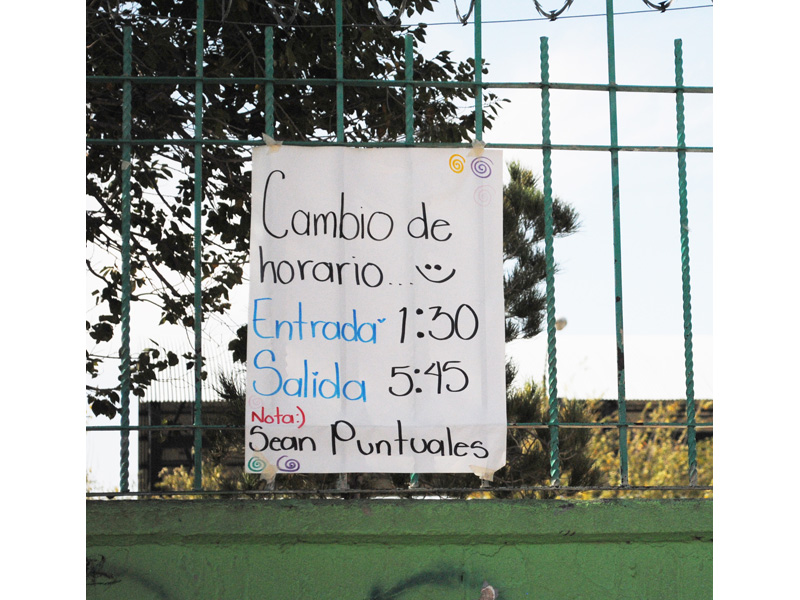 Cambio de
horario...
Entrada 1:30
Salida 5:45
Nota:)
Sean Puntuales